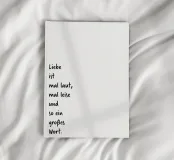 Liebe
ist
mal laut,
mal leise
und
so ein
großes
Wort.